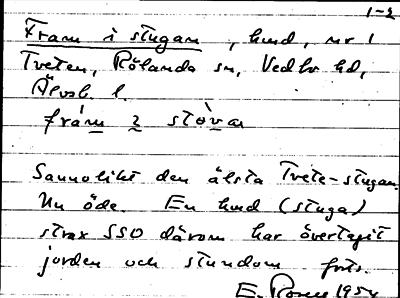 1-2
Fram i stugan, hmd, nr 1
Tveten, Rölanda sn, Vedbo hd,
Älvsb. l.
fràm 2 stòvar
Sannolikt den älsta Tvete-stugan.
Nu öde. En hmd (stuga)
strax SSO därom har övertagit
jorden och stundom
E. 1954